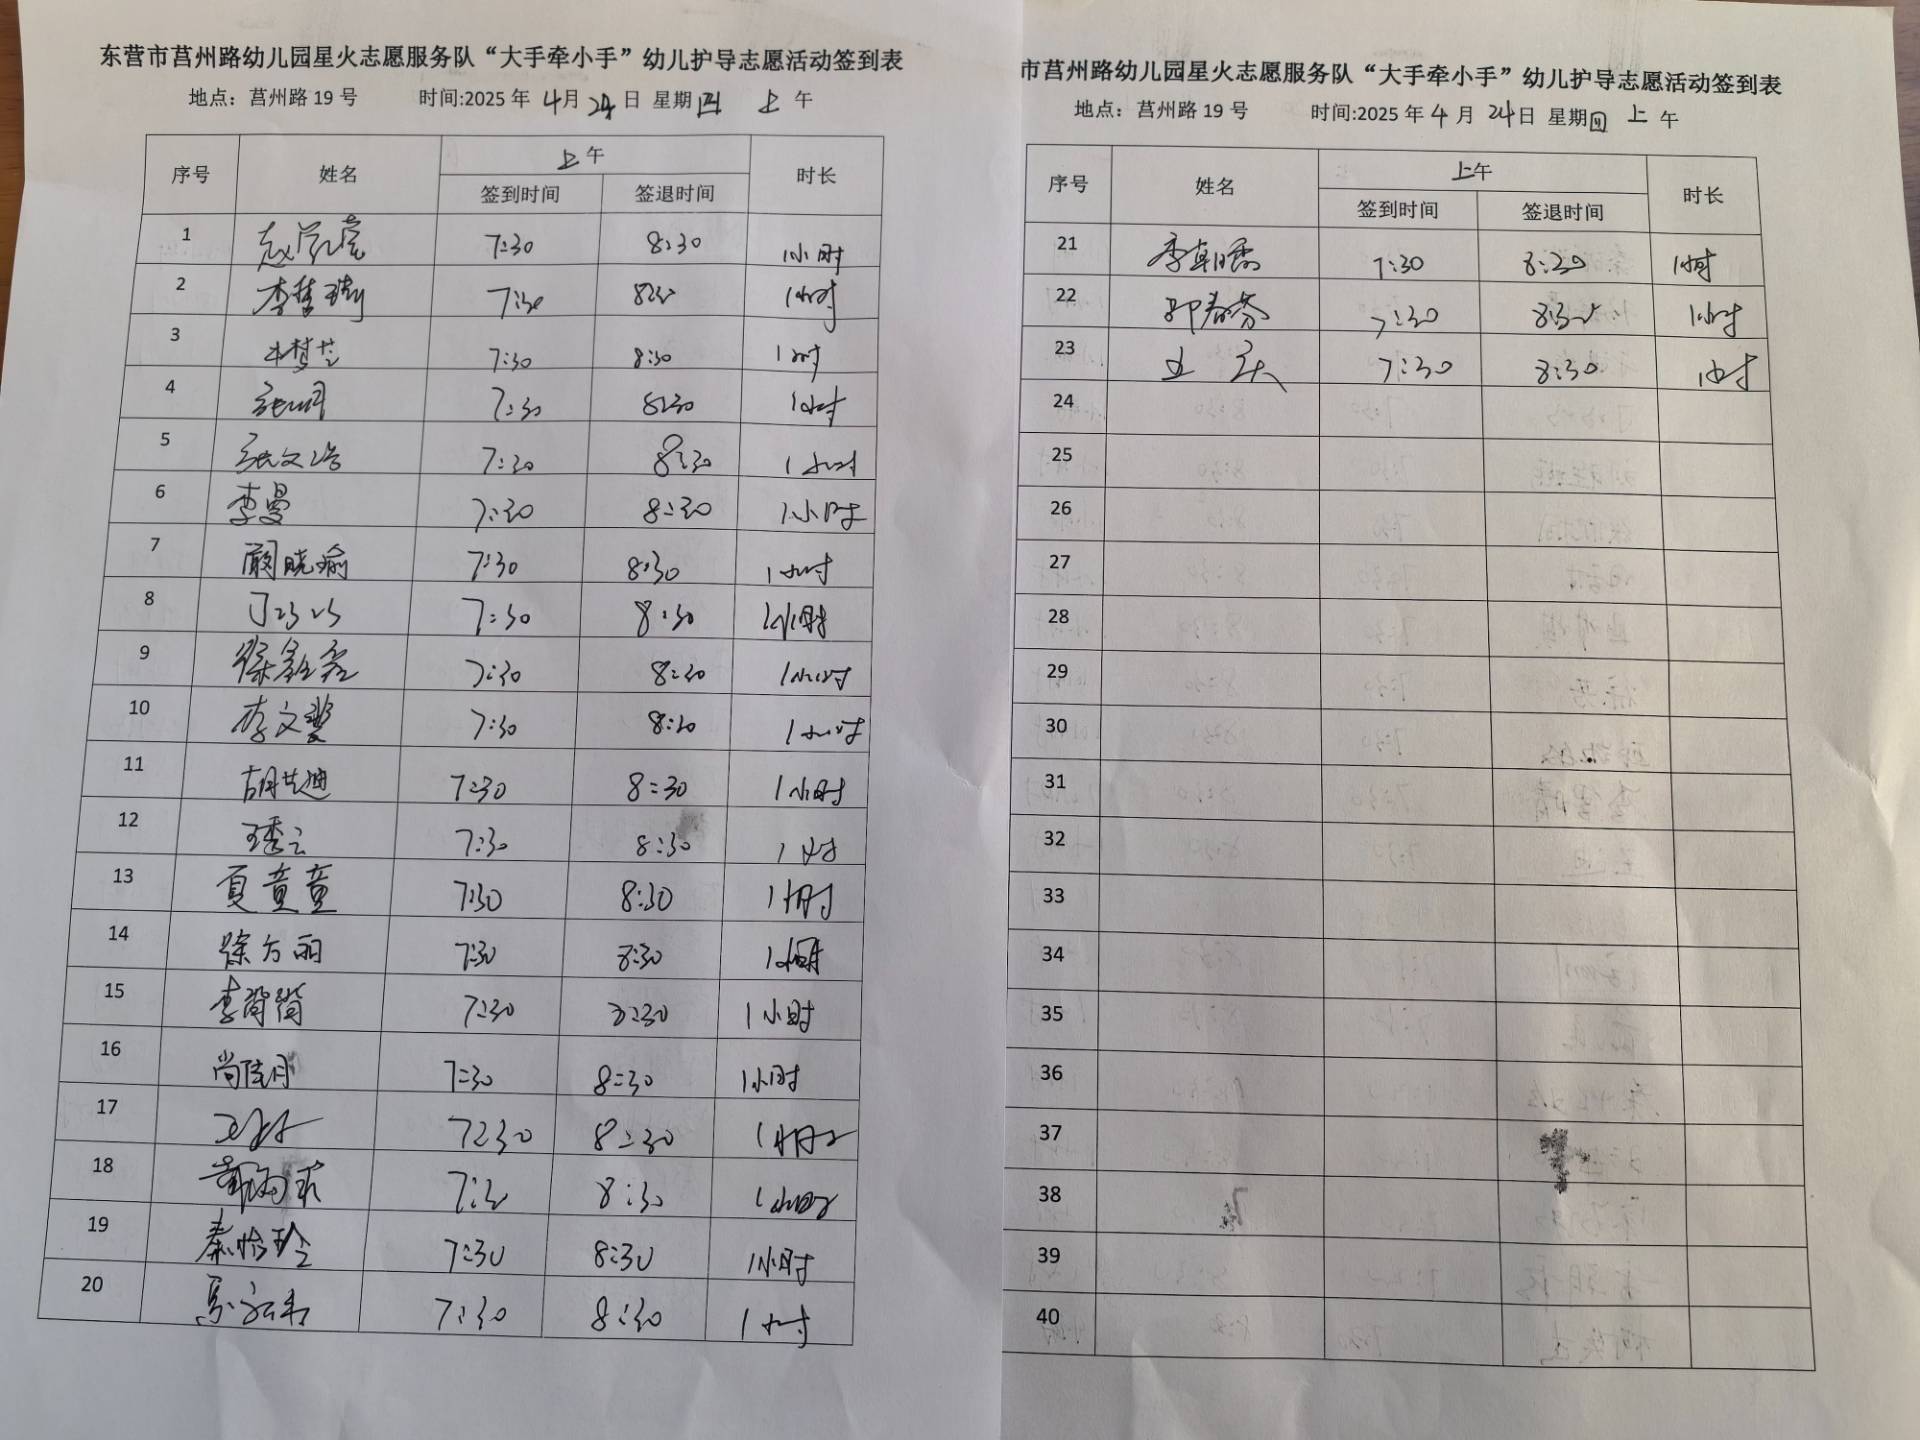 东营市莒州路幼儿园星火志愿服务队“大手牵小手”幼儿护导志愿活动签到表
地点：莒州路 19 号 时间:2025 年 4 月 24 日 星期 四 上 午
序号 姓名 上午 时长
签到时间 签退时间
1 7:30 8:30 1小时
2 李 7:30 8:30 1小时
3 7:30 8:30 1小时
4 7:30 8:30 1小时
5 张文 7:30 8:30 1小时
6 李曼 7:30 8:30 1小时
7 晓瑜 7:30 8:30 1小时
8 丁巧巧 7:30 8:30 1小时
9 徐 7:30 8:30 1小时
10 李文斐 7:30 8:30 1小时
11 胡艺迪 7:30 8:30 1小时
12 王秀云 7:30 8:30 1小时
13 夏童童 7:30 8:30 1小时
14 徐方丽 7:30 8:30 1小时
15 李 7:30 8:30 1小时
16 尚佳月 7:30 8:30 1小时
17 7:30 8:30 1小时
18 7:30 8:30 1小时
19 秦怡玲 7:30 8:30 1小时
20 马 7:30 8:30 1小时
市莒州路幼儿园星火志愿服务队“大手牵小手”幼儿护导志愿活动签到表
地点：莒州路 19 号 时间:2025 年 4 月 24 日 星期 四 上 午
序号 姓名 上午 时长
签到时间 签退时间
21 李朝霞 7:30 8:30 1小时
22 郭春芬 7:30 8:30 1小时
23 7:30 8:30 1小时
24
25
26
27
28
29
30
31
32
33
34
35
36
37
38
39
40